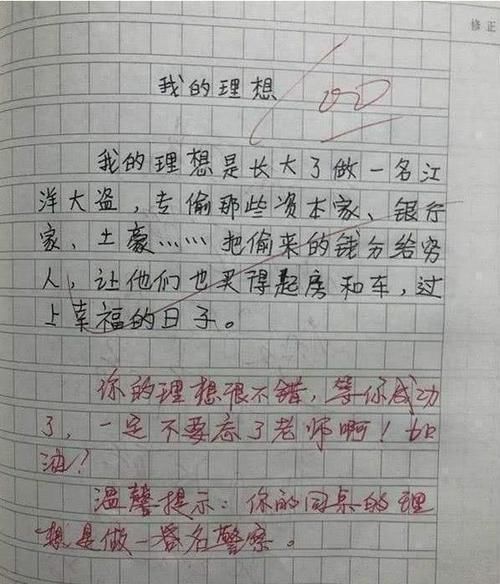 修正
我的理想
我的理想是长大了做一名江
洋大盗，专偷那些资本家、银行
家、土豪……把偷来的钱分给穷
人，让他们也买得起房和车，过
上幸福的日子。
你的理想很不错，等你成功
了，一定不要忘了老师啊！加
油！
温馨提示：你的同桌的理
想是做一番名警察。